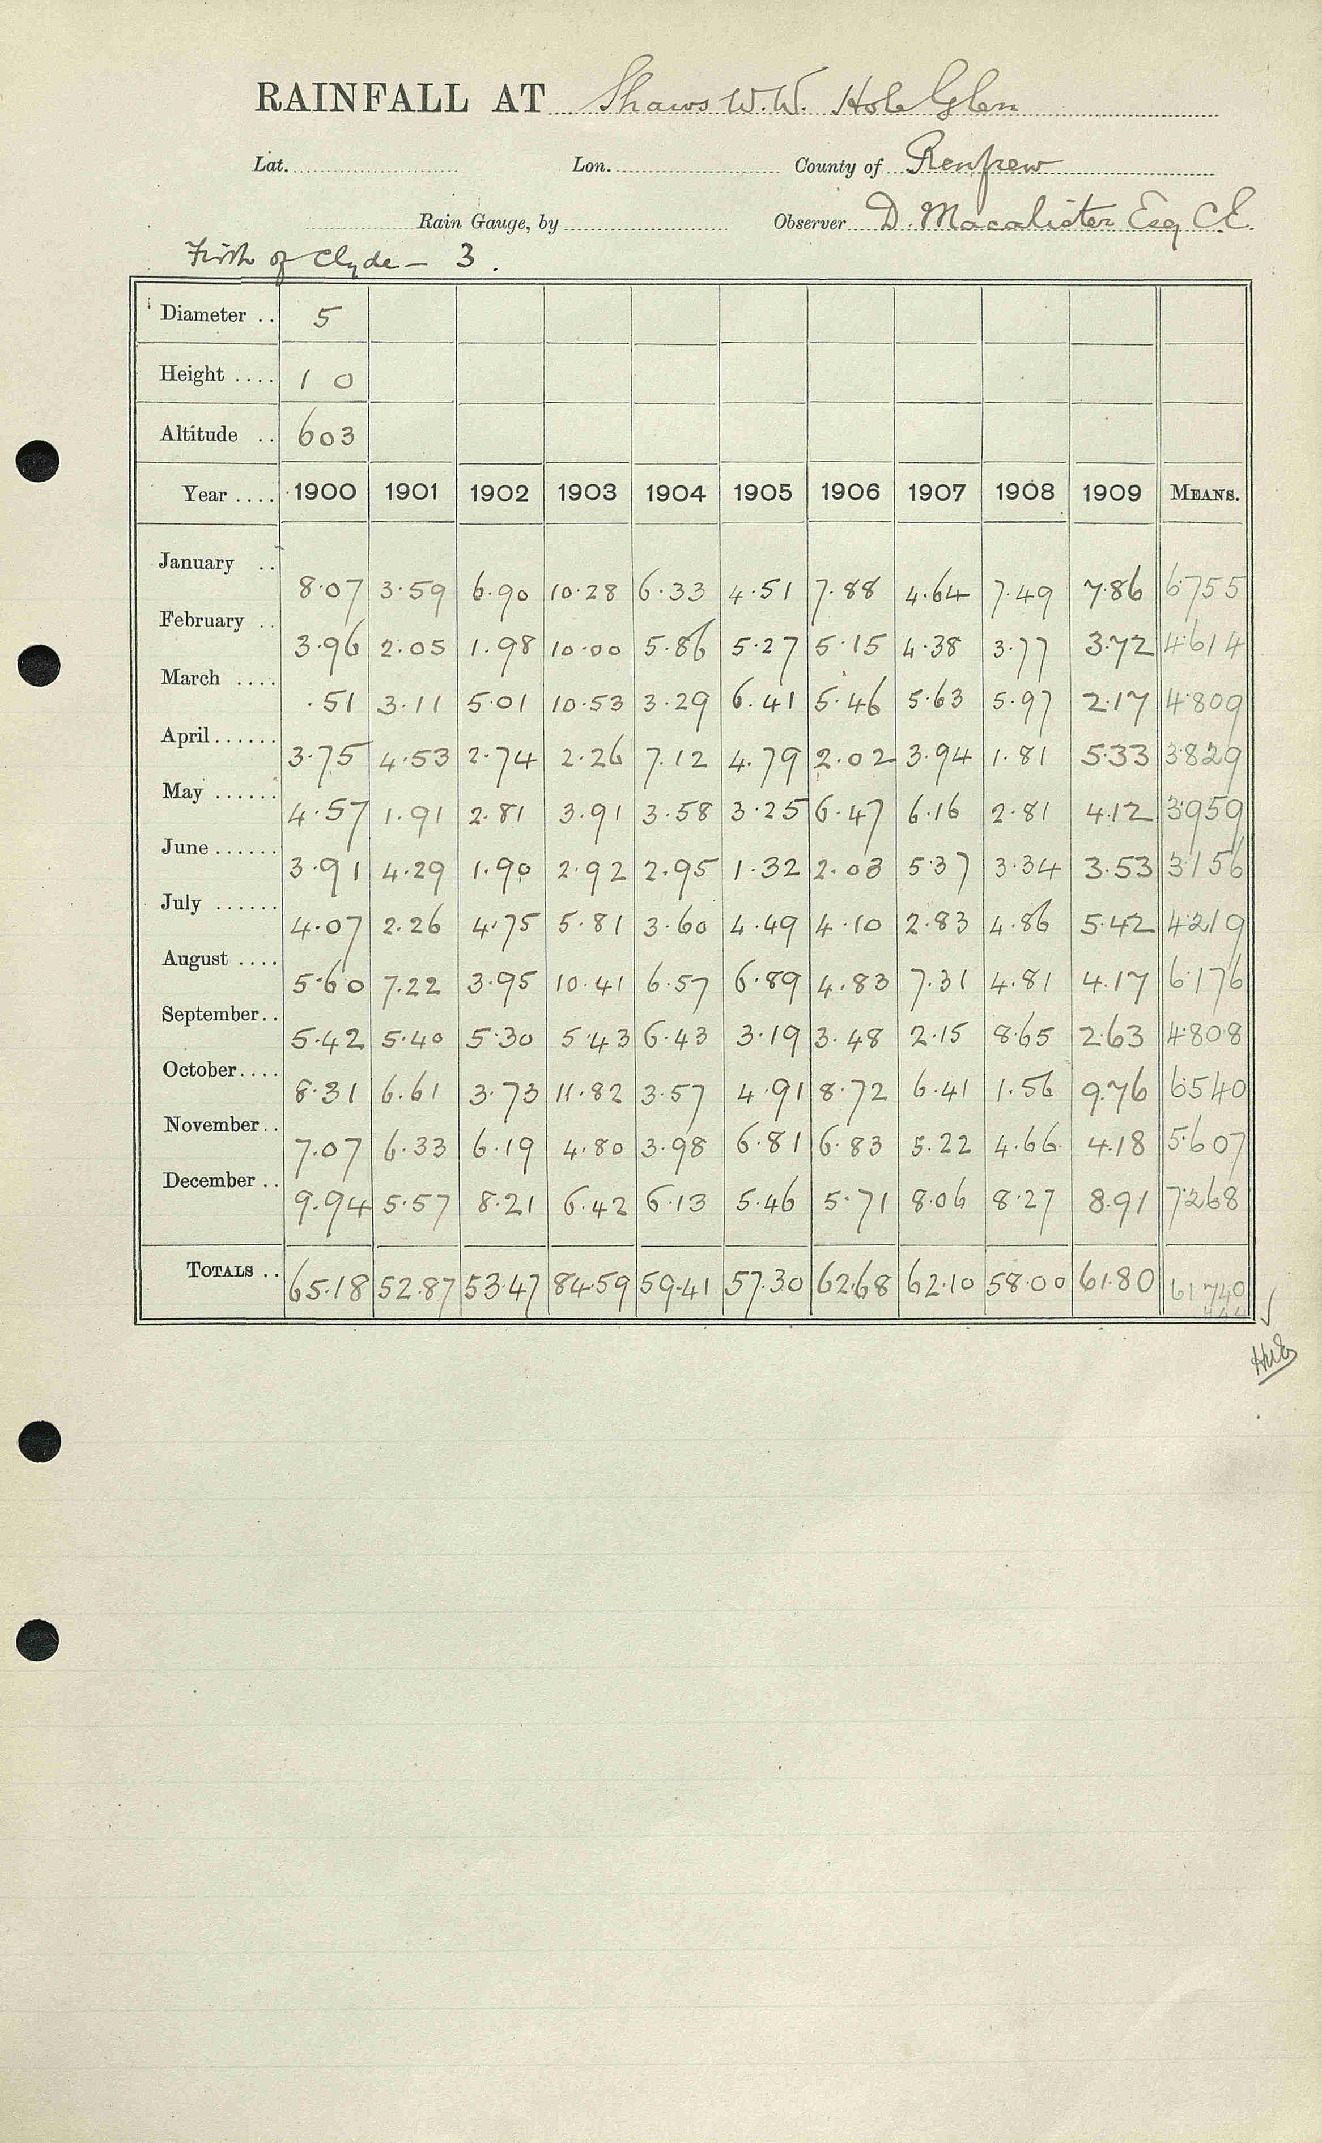 RAINFALL AT Shaws W.W. Hole Glen
Lat. Lon. County of Renfrew
Rain Gauge, by Observer D. Macalister Esq C.E.
Firth of Clyde - 3.
Diameter .. 5
Height .... 1 0
Altitude .. 603
Year .... 1900 1901 1902 1903 1904 1905 1906 1907 1908 1909 MEANS.
January .. 8.07 3.59 6.90 10.28 6.33 4.51 7.88 4.64 7.49 7.86 6.755
February .. 3.96 2.05 1.98 10.00 5.86 5.27 5.15 4.38 3.77 3.72 4.614
March .... .51 3.11 5.01 10.53 3.29 6.41 5.46 5.63 5.97 2.17 4.809
April...... 3.75 4.53 2.74 2.26 7.12 4.79 2.02 3.94 1.81 5.33 3.829
May ...... 4.57 1.91 2.81 3.91 3.58 3.25 6.47 6.16 2.81 4.12 3.959
June...... 3.91 4.29 1.90 2.92 2.95 1.32 2.03 5.37 3.34 3.53 3.156
July ...... 4.07 2.26 4.75 5.81 3.60 4.49 4.10 2.83 4.86 5.42 4.219
August .... 5.60 7.22 3.95 10.41 6.57 6.89 4.83 7.31 4.81 4.17 6.176
September.. 5.42 5.40 5.30 5.43 6.43 3.19 3.48 2.15 8.65 2.63 4.808
October.... 8.31 6.61 3.73 11.82 3.57 4.91 8.72 6.41 1.56 9.76 6.540
November.. 7.07 6.33 6.19 4.80 3.98 6.81 6.83 5.22 4.66 4.18 5.607
December .. 9.94 5.57 8.21 6.42 6.13 5.46 5.71 8.06 8.27 8.91 7.268
TOTALS .. 65.18 52.87 53.47 84.59 59.41 57.30 62.68 62.10 58.00 61.80 61.740